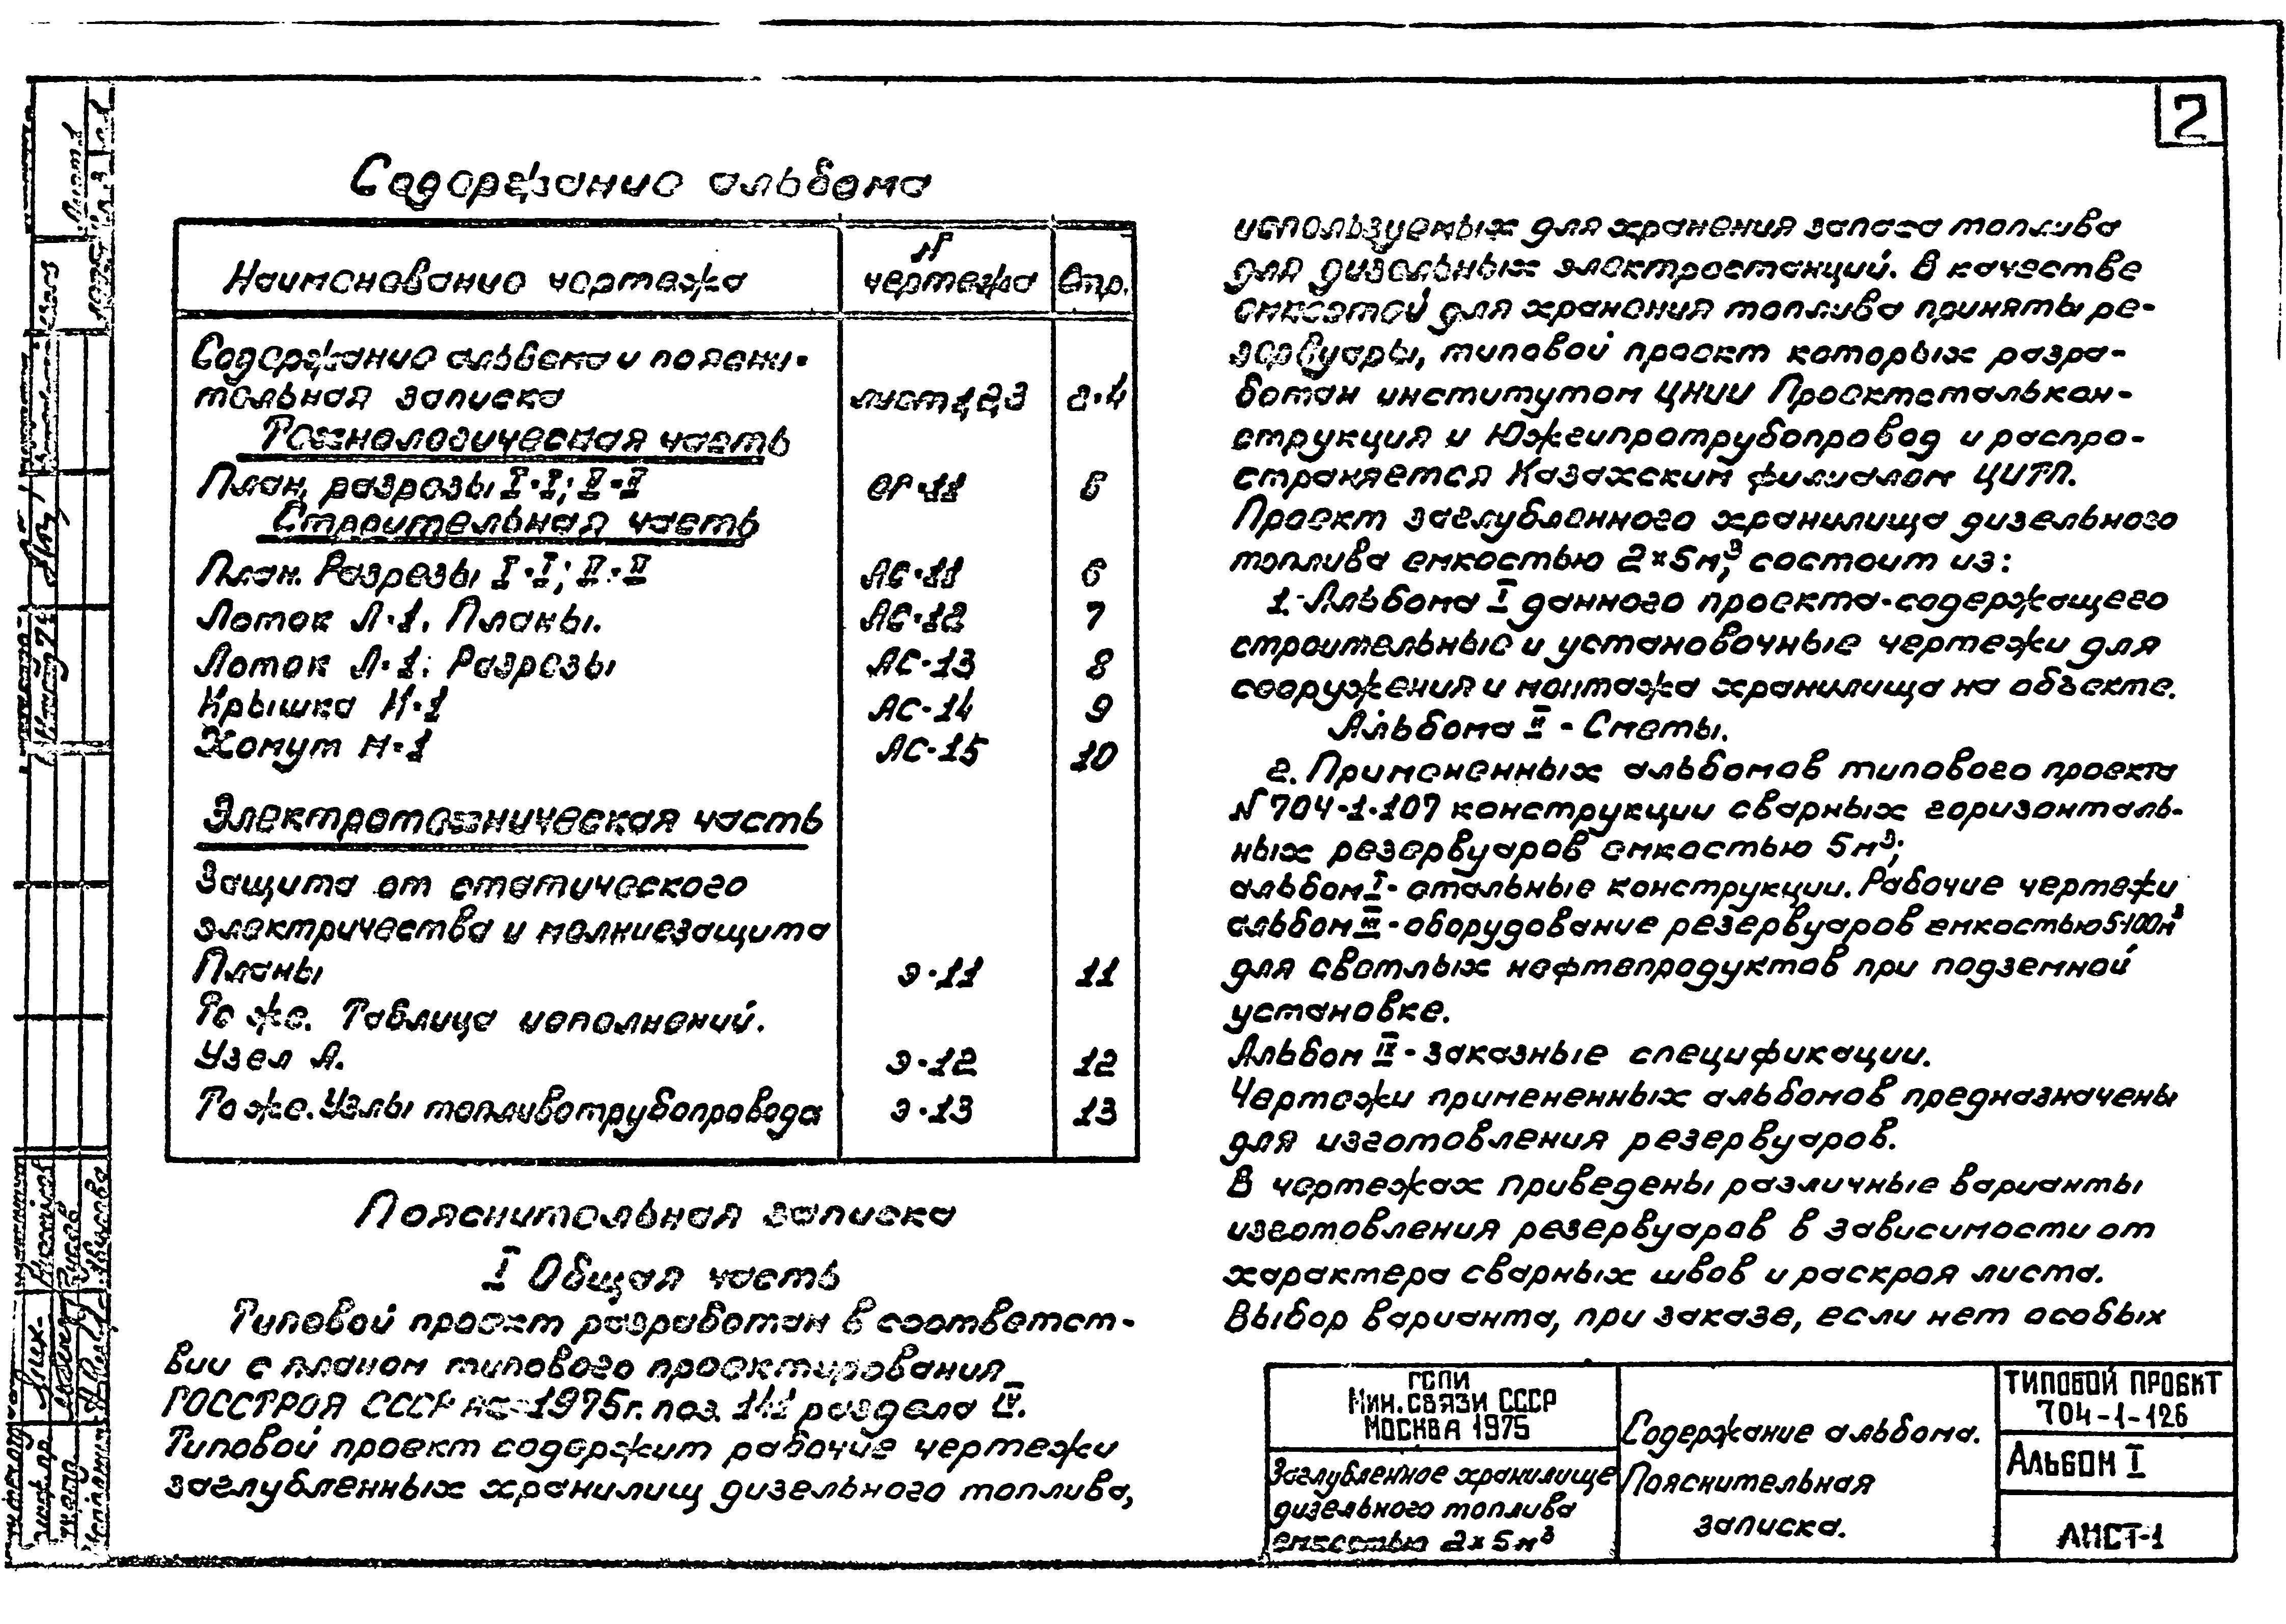 2
Содержание альбома
Наименование чертежа
N чертежа
Стр.
Содержание альбома и поясни-
тельная записка лист 1,2,3 2-4
Технологическая часть
План, разрезы I-I; II-II 5
Строительная часть
План. Разрезы I-I; II-II АС-11 6
Лоток Л-1. Планы. АС-12 7
Лоток Л-1. Разрезы АС-13 8
Крышка К-1 АС-14 9
Хомут М-1 АС-15 10
Электротехническая часть
Защита от статического
электричества и молниезащита
Планы Э-11 11
То же. Таблица исполнений.
Узел А. Э-12 12
То же. Узлы топливотрубопровода Э-13 13
Пояснительная записка
I Общая часть
Типовой проект разработан в соответст-
вии с планом типового проектирования
ГОССТРОЯ СССР на 1975г. поз. раздела IV.
Типовой проект содержит рабочие чертежи
заглубленных хранилищ дизельного топлива,
используемых для хранения запаса топлива
для дизельных электростанций. В качестве
емкостей для хранения топлива приняты ре-
зервуары, типовой проект которых разра-
ботан институтом ЦНИИ Проектсталькон-
струкция и Южгипротрубопровод и распро-
страняется Казахским филиалом ЦИТП.
Проект заглубленного хранилища дизельного
топлива емкостью 2×5м³, состоит из:
1. Альбома I данного проекта-содержащего
строительные и установочные чертежи для
сооружения и монтажа хранилища на объекте.
Альбома II - Сметы.
2. Примененных альбомов типового проекта
N 704-1-107 конструкции сварных горизонталь-
ных резервуаров емкостью 5м³;
альбом I - стальные конструкции. Рабочие чертежи
альбом III - оборудование резервуаров емкостью 5-100м³
для светлых нефтепродуктов при подземной
установке.
Альбом IX - заказные спецификации.
Чертежи примененных альбомов предназначены
для изготовления резервуаров.
В чертежах приведены различные варианты
изготовления резервуаров в зависимости от
характера сварных швов и раскроя листа.
Выбор варианта, при заказе, если нет особых
ГСПИ
Мин. связи СССР
Москва 1975
Заглубленное хранилище
дизельного топлива
емкостью 2×5м³
Содержание альбома.
Пояснительная
записка.
ТИПОВОЙ ПРОЕКТ
704-1-126
Альбом I
Лист-1